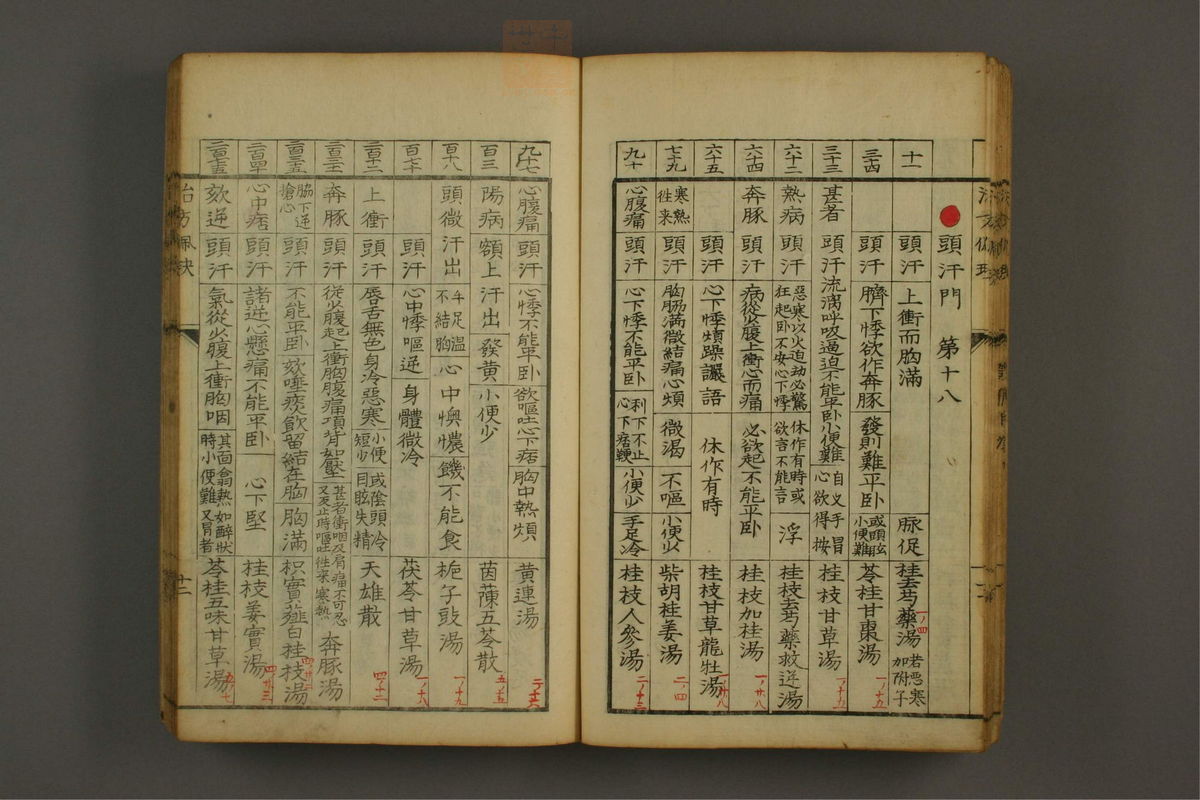 頭汗門 第十八
十一 頭汗 上衝而胸滿 脈促 桂去芍藥湯 若悪寒加附子 一ノ四
三四 頭汗 臍下悸欲作奔豚 發則難平卧 或頭眩小便難 苓桂甘棗湯 一ノ十五
三十三 甚者 頭汗 流漓呼吸逼迫不能平卧小便難 自叉手冒心欲得按 桂枝甘草湯 一ノ十五
六十二 熱病 頭汗 惡寒以火迫劫必驚狂起卧不安心下悸 休作有時或欲言不能言 浮 桂枝去芍藥救逆湯
六十四 奔豚 頭汗 病從少腹上衝心而痛 必欲起不能平卧 桂枝加桂湯 一ノ廿八
六十五 頭汗 心下悸煩躁讝語 休作有時 桂枝甘草龍牡湯 一ノ廿八
七十九 寒熱徃来 頭汗 胸脇滿微結痛心煩 微渴 不嘔 小便少 柴胡桂姜湯 二ノ四
九十 心腹痛 頭汗 心下悸不能平卧 利下不止心下痞鞕 小便少 手足冷 桂枝人參湯 二ノ十三
九十七 心腹痛 頭汗 心悸不能平卧 欲嘔吐心下痞 胸中熱煩 黄連湯 二ノ十六
百三 陽病 額上汗出 發黄 小便少 茵蔯五苓散 五ノ五
百十八 頭微汗出 手足溫不結胸 心中懊憹 饑不能食 梔子豉湯 一ノ十九
百七十 頭汗 心中悸嘔逆 身體微冷 茯苓甘草湯 一ノ十九
二百十二 上衝 頭汗 唇舌無色身冷惡寒 小便短少 或陰頭冷目眩失精 天雄散 四ノ十二
奔豚 頭汗 從少腹起上衝胸腹痛項背如壓 甚者衝咽及肩痛不可忍又发止時嘔吐往来寒熱 奔豚湯
二百三十五 脇下逆搶心 頭汗 不能平卧 欬唾痰飲留結在胸 胸滿 枳實薤白桂枝湯 四ノ廿二
二百四十 心中痞 頭汗 諸逆心懸痛不能平卧 心下堅 桂枝姜實湯 四ノ廿三
二百七十五 欬逆 頭汗 氣從少腹上衝胸咽 其面翕熱如醉狀時小便難又冒者 苓桂五味甘草湯 五ノ七
治方風訣
十二